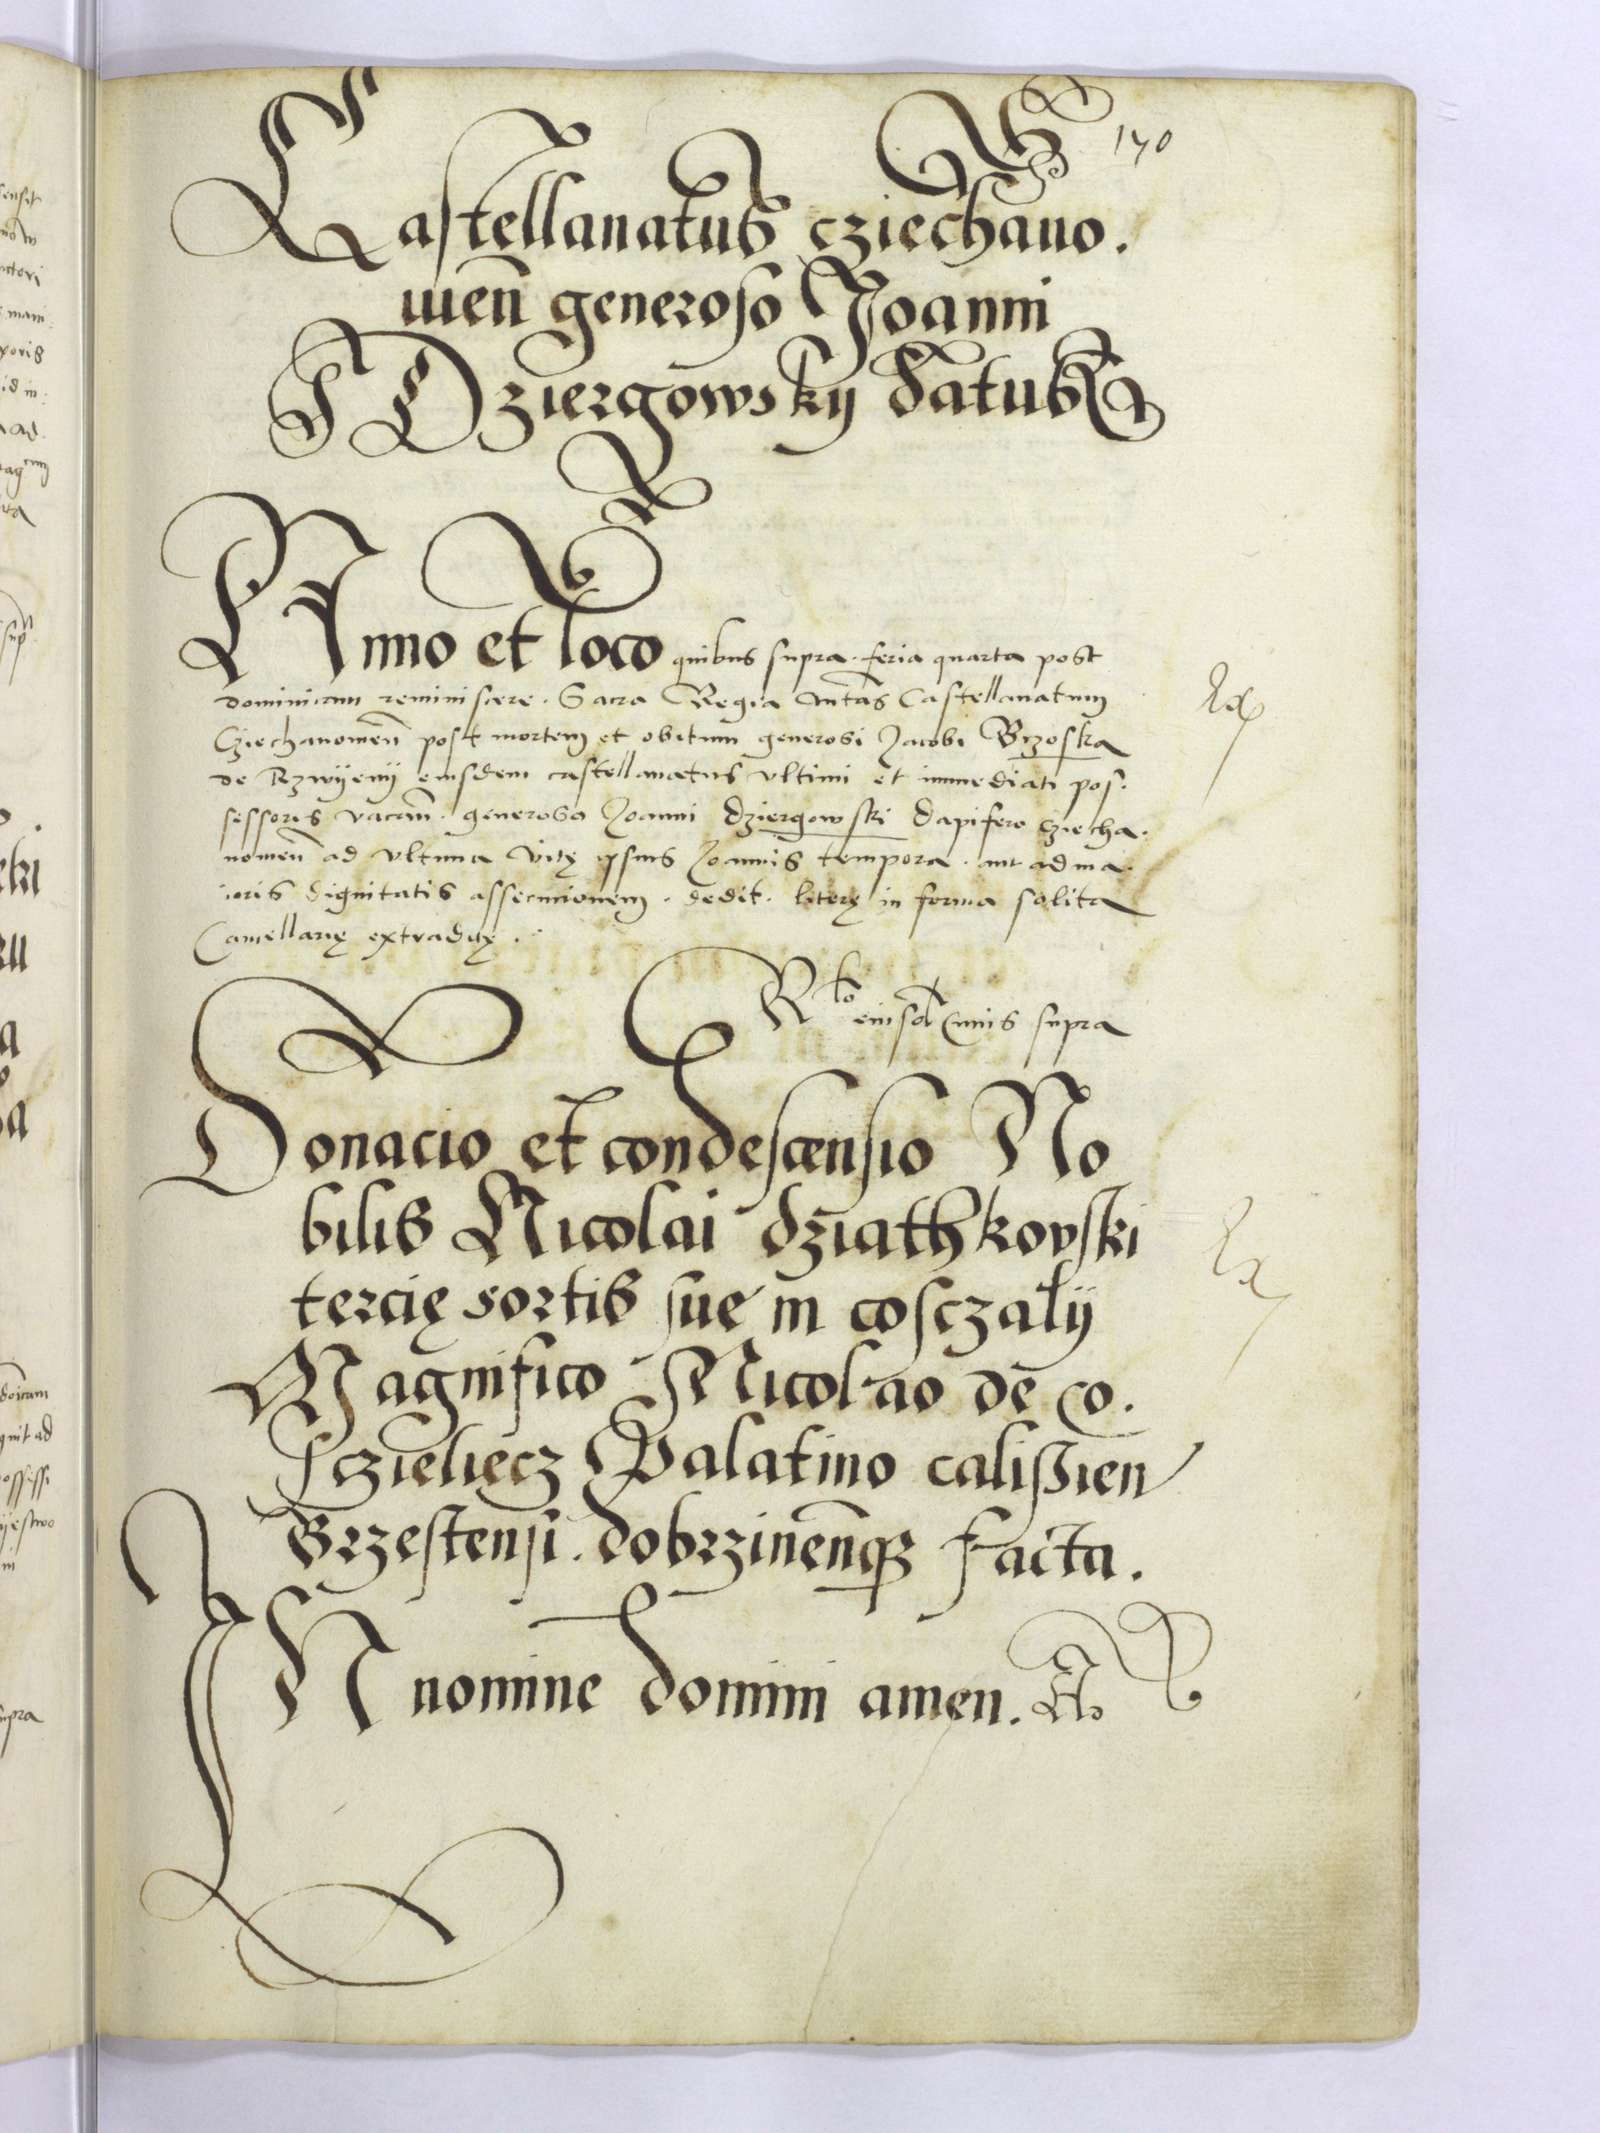 170
Castellanatus cziechano.
wen̄ generoso Joanni
Dziergowskÿ datus
Anno et loco quibus supra. feria quarta post
dominicam reminiscere. Sacra Regia Mtas Castellanatum
Cziechanowen̄ post mortem et obitum generosi Jacobi Brzoska
de eiusdem castellanatus ultimi et immediati pos.
sessoris vacan̄. generoso Joanni dziergowski dapifero cziecha.
nowen̄ ad ultima vitę ipsius Joannis tempora. aut ad ma.
ioris dignitatis assecucionem. dedit. literę in forma solita
Cancellarię extraditę.
Rlo eiusd Cuius supra
Donacio et condescensio No
bilis Nicolai dziathkovski
tercię sortis suę in cosczalÿ
Magnifico Nicolao de co.
sczielięcz Palatino calissien
Brzestensi. dobrzinen̄qꝫ facta.
IN nomine domini amen. A